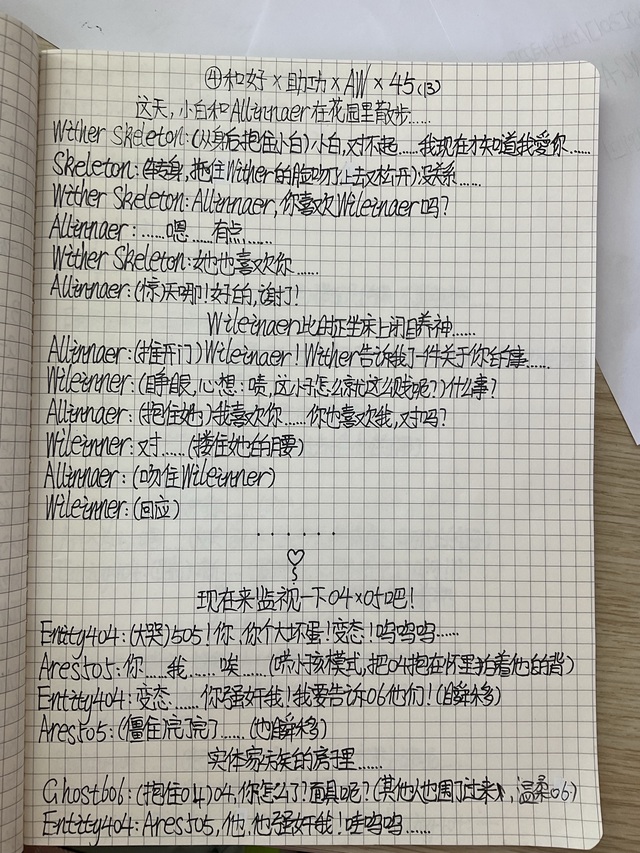 ④和好×助功×AW×45(13)
这天,小白和Allinnaer在花园里散步……
Wither Skeleton:(从身后抱住小白)小白,对不起……我现在才知道我爱你……
Skeleton:(转身,抱住Wither的脸吻了上去又松开)没关系……
Wither Skeleton:Allinnaer,你喜欢Wileinaer吗?
Allinnaer:……嗯……有点……
Wither Skeleton:她也喜欢你……
Allinnaer:(惊)天哪!好的,谢了!
Wileinaer此时正坐床上闭目养神……
Allinnaer:(推开门)Wileinaer!Wither告诉我了一件关于你的事……
Wileinner:(睁眼,心想:啧,这小子怎么就这么贱呢?)什么事?
Allinnaer:(抱住她)我喜欢你……你也喜欢我,对吗?
Wileinner:对……(搂住她的腰)
Allinnaer:(吻住Wileinner)
Wileinner:(回应)
......
现在来监视一下04×05吧!
Entity404:(大哭)505!你,你个大坏蛋!变态!呜呜呜……
Ares505:你……我……唉……(哄小孩模式,把04抱在怀里拍着他的背)
Entity404:变态……你强奸我!我要告诉06他们!(瞬移)
Ares505:(僵住)完了完了……(也瞬移)
实体家族的房子里……
Ghost606:(抱住04)04,你怎么了?面具呢?(其他人也围了过来,温柔06)
Entity404:Ares505,他,他强奸我!哇呜呜……